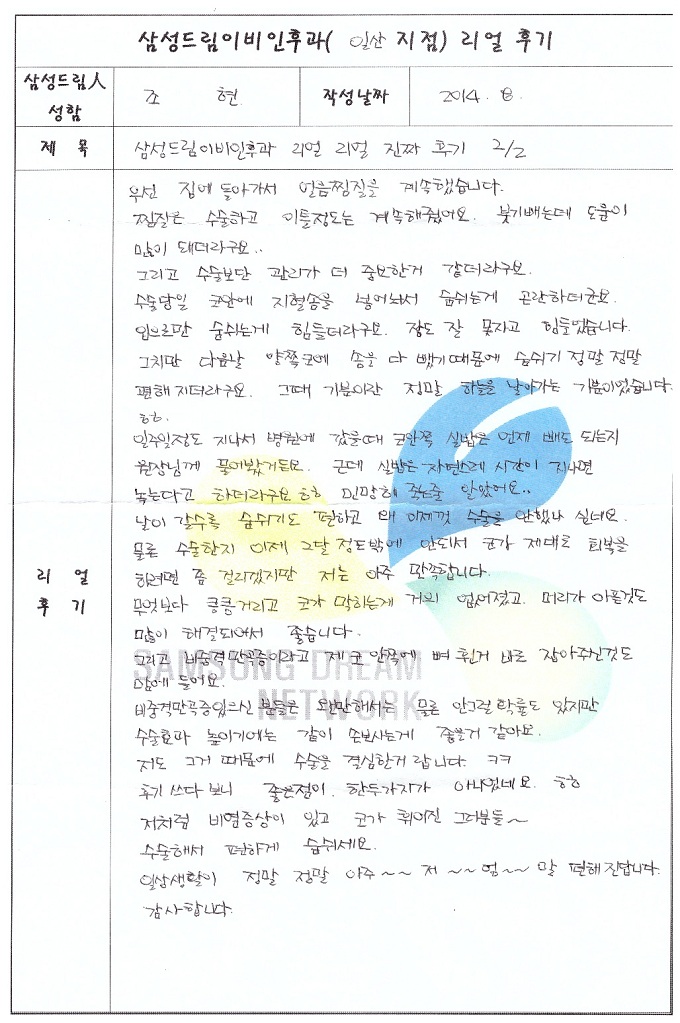 삼성드림이비인후과( 일산 지점) 리얼 후기
삼성드림人 성함
조 현
작성날짜
2014. 8.
제 목
삼성드림이비인후과 리얼 리얼 진짜 후기 2/2
리 얼
후 기
우선 집에 돌아가서 얼음찜질을 계속했습니다.
찜질은 수술하고 이틀정도는 계속해줬어요. 붓기빼는데 도움이
많이 돼더라구요..
그리고 수술보단 관리가 더 중요한거 같더라구요.
수술당일 코안에 지혈솜을 넣어놔서 숨쉬는게 곤란하더군요.
입으로만 숨쉬는게 힘들더라구요. 잠도 잘 못자고 힘들었습니다.
그치만 다음날 양쪽코에 솜을 다 뺐기때문에 숨쉬기 정말 정말
편해지더라구요. 그때 기분이란 정말 하늘을 날아가는 기분이었습니다.
ㅎㅎ.
일주일정도 지나서 병원에 갔을때 코안쪽 실밥은 언제 빼도 되는지
원장님께 물어봤거든요. 근데 실밥은 자연스레 시간이 지나면
녹는다고 하더라구요 ㅎㅎ 민망해 죽는줄 알았어요..
날이 갈수록 숨쉬기도 편하고 왜 이제껏 수술을 안했나 싶네요.
물론 수술한지 이제 그달 정도밖에 안되서 코가 제대로 회복을
하려면 좀 걸리겠지만 저는 아주 만족합니다.
무엇보다 킁킁거리고 코가 막히는게 거의 없어졌고. 머리가 아픈것도
많이 해결되어서 좋습니다.
그리고 비중격만곡증이라고 제 코 안쪽에 뼈 휜거 바로 잡아주신것도
맘에 들어요.
비중격만곡증있으신 분들은 웬만해서는 물론 안그럴 확률도 있지만
수술효과 높이기에는 같이 손보시는게 좋을거 같아요.
저도 그거 때문에 수술을 결심한거 랍니다. ㅋㅋ
후기 쓰다 보니 좋은점이 한두가지가 아니었네요. ㅎㅎ
저처럼 비염증상이 있고 코가 휘어진 그러분들~
수술해서 편하게 숨쉬세요.
일상생활이 정말 정말 아주~~ 저~~엉~~말 편해진답니다.
감사합니다.
SAMSUNG DREAM
NETWORK